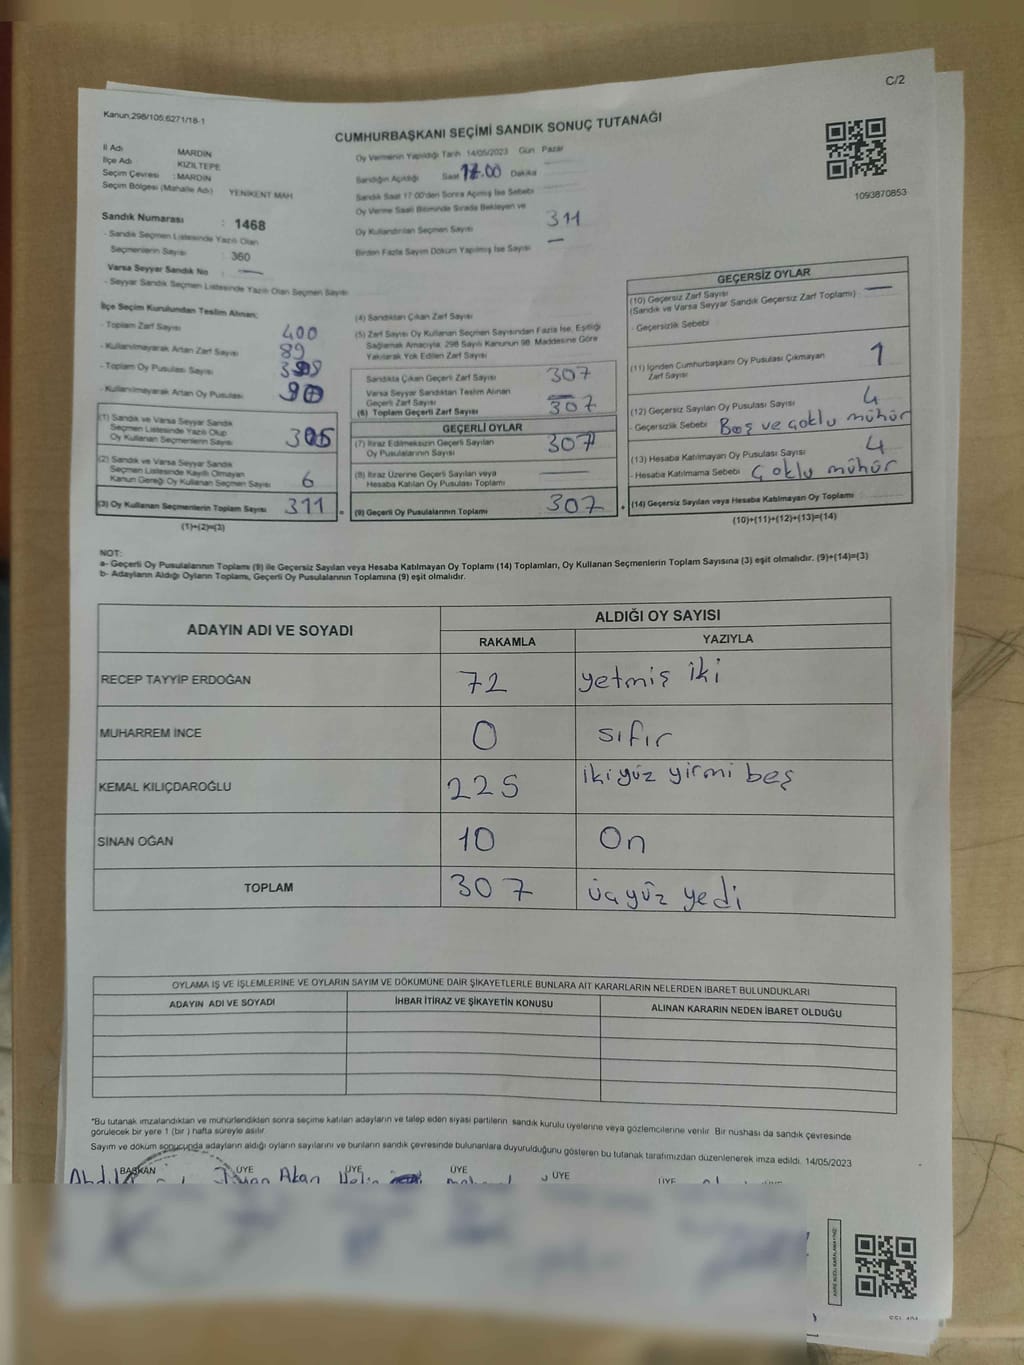 C/2
Kanun,298/105;6271/18-1
CUMHURBAŞKANI SEÇİMİ SANDIK SONUÇ TUTANAĞI
İl Adı MARDİN
İlçe Adı KIZILTEPE
Seçim Çevresi : MARDİN
Seçim Bölgesi (Mahalle Adı) YENİKENT MAH
Oy Vermenin Yapıldığı Tarih 14/05/2023 Gün Pazar
Sandığın Açıldığı Saat 17.00 Dakika
Sandık Saat 17:00'den Sonra Açılmış İse Sebebi
Oy Verme Saati Bitiminde Sırada Bekleyen ve
Oy Kullandırılan Seçmen Sayısı 311
Birden Fazla Sayım Döküm Yapılmış İse Sayısı —
1093870853
Sandık Numarası : 1468
- Sandık Seçmen Listesinde Yazılı Olan
Seçmenlerin Sayısı : 360
Varsa Seyyar Sandık No —
- Seyyar Sandık Seçmen Listesinde Yazılı Olan Seçmen Sayısı
İlçe Seçim Kurulundan Teslim Alınan;
- Toplam Zarf Sayısı 400
- Kullanılmayarak Artan Zarf Sayısı 89
- Toplam Oy Pusulası Sayısı
- Kullanılmayarak Artan Oy Pusulası
(1) Sandık ve Varsa Seyyar Sandık
Seçmen Listesinde Yazılı Olup
Oy Kullanan Seçmenlerin Sayısı 305
(2) Sandık ve Varsa Seyyar Sandık
Seçmen Listesinde Kayıtlı Olmayan
Kanun Gereği Oy Kullanan Seçmen Sayısı 6
(3) Oy Kullanan Seçmenlerin Toplam Sayısı 311
(1)+(2)=(3)
(4) Sandıktan Çıkan Zarf Sayısı
(5) Zarf Sayısı Oy Kullanan Seçmen Sayısından Fazla İse, Eşitliği
Sağlamak Amacıyla, 298 Sayılı Kanunun 98. Maddesine Göre
Yakılarak Yok Edilen Zarf Sayısı
Sandıkta Çıkan Geçerli Zarf Sayısı 307
Varsa Seyyar Sandıktan Teslim Alınan
Geçerli Zarf Sayısı —
(6) Toplam Geçerli Zarf Sayısı 307
GEÇERLİ OYLAR
(7) İtiraz Edilmeksizin Geçerli Sayılan
Oy Pusulalarının Sayısı 307
(8) İtiraz Üzerine Geçerli Sayılan veya
Hesaba Katılan Oy Pusulası Toplamı —
(9) Geçerli Oy Pusulalarının Toplamı 307
GEÇERSİZ OYLAR
(10) Geçersiz Zarf Sayısı —
(Sandık ve Varsa Seyyar Sandık Geçersiz Zarf Toplamı)
- Geçersizlik Sebebi
(11) İçinden Cumhurbaşkanı Oy Pusulası Çıkmayan
Zarf Sayısı 1
(12) Geçersiz Sayılan Oy Pusulası Sayısı 4
- Geçersizlik Sebebi Boş ve çoklu mühür
(13) Hesaba Katılmayan Oy Pusulası Sayısı 4
- Hesaba Katılmama Sebebi çoklu mühür
(14) Geçersiz Sayılan veya Hesaba Katılmayan Oy Toplamı
(10)+(11)+(12)+(13)=(14)
NOT:
a- Geçerli Oy Pusulalarının Toplamı (9) ile Geçersiz Sayılan veya Hesaba Katılmayan Oy Toplamı (14) Toplamları, Oy Kullanan Seçmenlerin Toplam Sayısına (3) eşit olmalıdır. (9)+(14)=(3)
b- Adayların Aldığı Oyların Toplamı, Geçerli Oy Pusulalarının Toplamına (9) eşit olmalıdır.
ADAYIN ADI VE SOYADI ALDIĞI OY SAYISI
RAKAMLA YAZIYLA
RECEP TAYYİP ERDOĞAN 72 yetmiş iki
MUHARREM İNCE 0 sıfır
KEMAL KILIÇDAROĞLU 225 ikiyüz yirmi beş
SİNAN OĞAN 10 On
TOPLAM 307 üçyüz yedi
OYLAMA İŞ VE İŞLEMLERİNE VE OYLARIN SAYIM VE DÖKÜMÜNE DAİR ŞİKAYETLERLE BUNLARA AİT KARARLARIN NELERDEN İBARET BULUNDUKLARI
ADAYIN ADI VE SOYADI İHBAR İTİRAZ VE ŞİKAYETİN KONUSU ALINAN KARARIN NEDEN İBARET OLDUĞU
*Bu tutanak imzalandıktan ve mühürlendikten sonra seçime katılan adayların ve talep eden siyasi partilerin sandık kurulu üyelerine veya gözlemcilerine verilir. Bir nüshası da sandık çevresinde
görülecek bir yere 1 (bir) hafta süreyle asılır.
Sayım ve döküm sonucunda adayların aldığı oyların sayılarını ve bunların sandık çevresinde bulunanlara duyurulduğunu gösteren bu tutanak tarafımızdan düzenlenerek imza edildi. 14/05/2023
BAŞKAN ÜYE ÜYE ÜYE ÜYE ÜYE
Akan